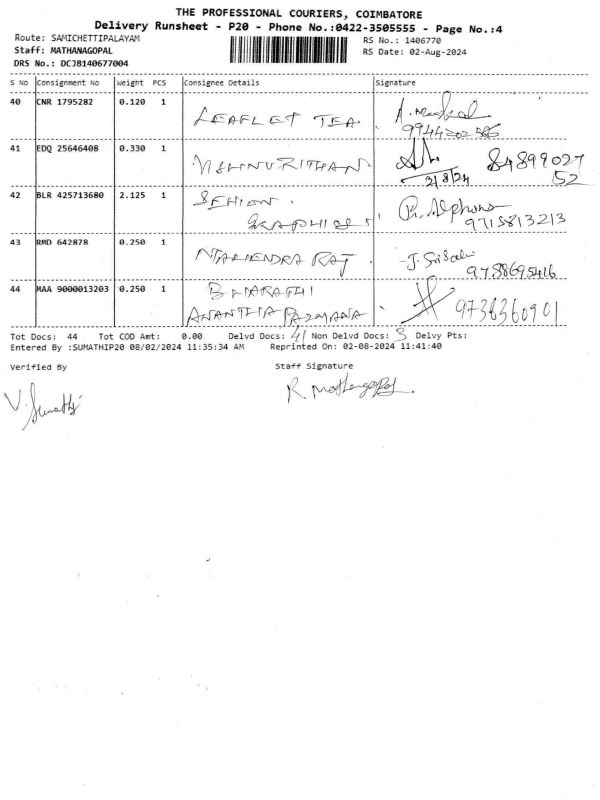 THE PROFESSIONAL COURIERS, COIMBATORE
Delivery Runsheet - P20 - Phone No.:0422-3505555 - Page No.:4
Route: SAMICHETTIPALAYAM RS No.: 1406770
Staff: MATHANAGOPAL RS Date: 02-Aug-2024
DRS No.: DCJB140677004
S No Consignment No Weight PCS Consignee Details Signature
40 CNR 1795282 0.120 1 LEAFLET TEA
41 EDQ 25646408 0.330 1 84899027
2/8/24 52
42 BLR 425713680 2.125 1 SEHION Alphons
GRAPHICS 9715813213
43 RMD 642878 0.250 1 RAJ
9758695416
44 MAA 9000013203 0.250 1 BHARATHI
ANANTHA 9736360901
Tot Docs: 44 Tot COD Amt: 0.00 Delvd Docs: 41 Non Delvd Docs: 3 Delvy Pts:
Entered By :SUMATHIP20 08/02/2024 11:35:34 AM Reprinted On: 02-08-2024 11:41:40
Verified By Staff Signature
V. Sumathi R. Mathanagopal